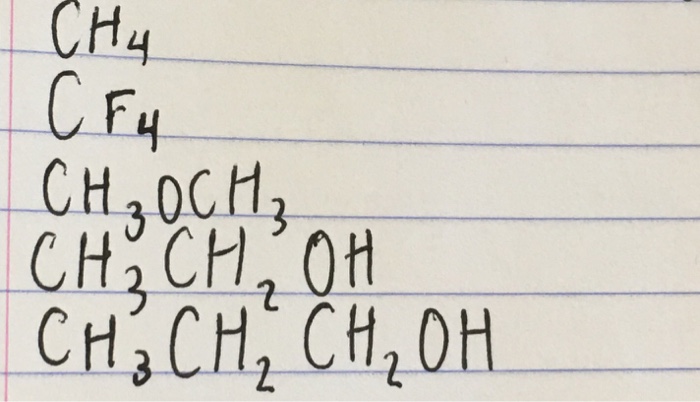 CH₄
CF₄
CH₃OCH₃
CH₃CH₂OH
CH₃CH₂CH₂OH